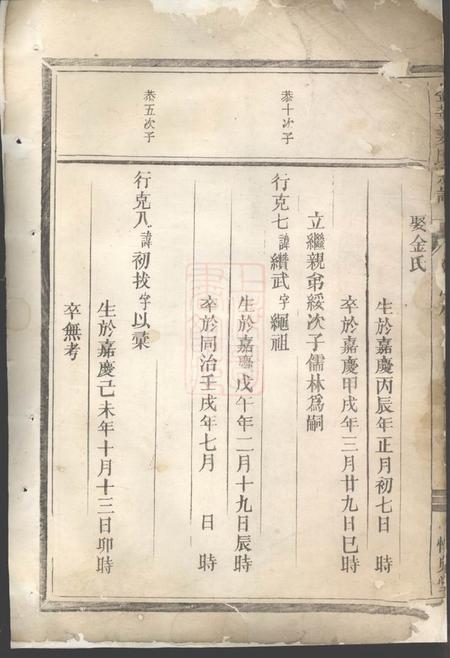 娶金氏
生於嘉慶丙辰年正月初七日 時
卒於嘉慶甲戌年三月廿九日巳時
立繼親弟綏次子儒林爲嗣
恭十次子
行克七諱纘武字繩祖
生於嘉慶戊午年二月十九日辰時
卒於同治壬戌年七月 日 時
恭五次子
行克八諱初拔字以彙
生於嘉慶己未年十月十三日卯時
卒無考